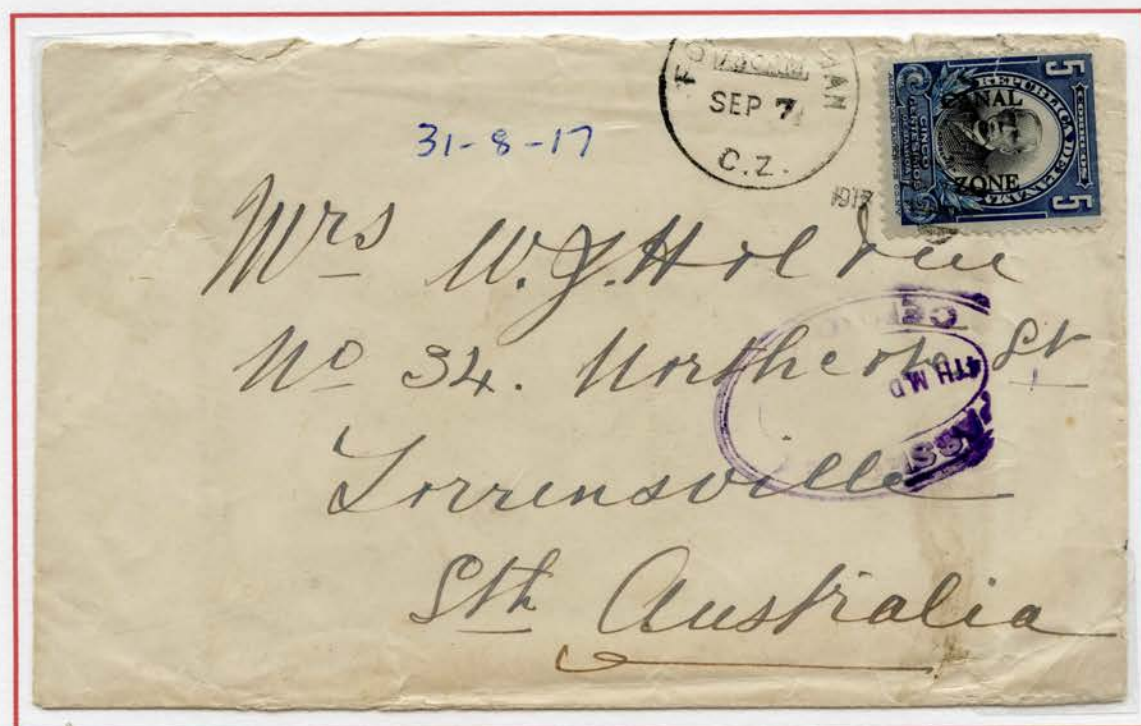 C.Z.
SEP 7
1917
5 REPUBLICA DE PANAMA 5
CORREOS
CANAL
ZONE
CINCO
CENTESIMOS
31-8-17
Mrs W.J. Holden
No 34. Northcote St
Torrensville
Sth Australia
4TH M.D